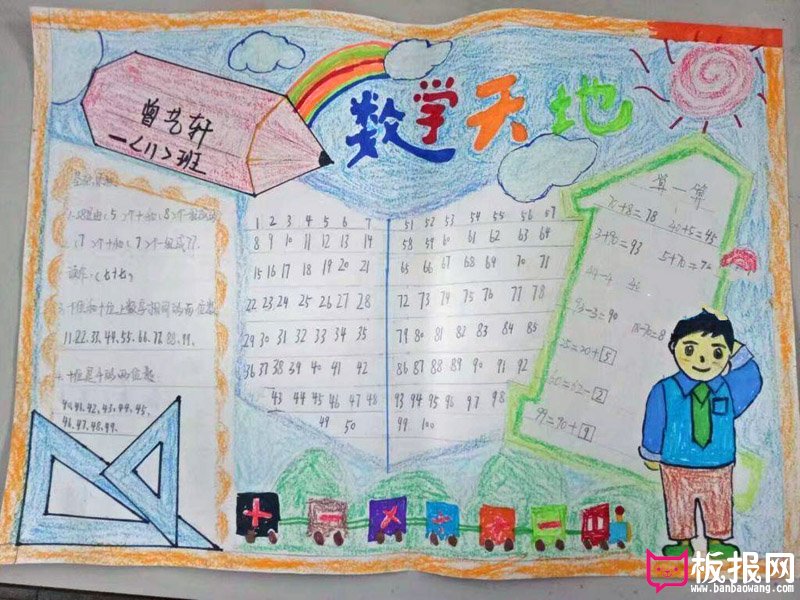 数学天地
曾艺轩
一<1>班
十位和个位上数字相同的两位数
11.22.33.44.55.66.77.88.99.
40.41.42.43.44.45.
46.47.48.49.
1 2 3 4 5 6 7
8 9 10 11 12 13 14
15 16 17 18 19 20 21
22 23 24 25 26 27 28
29 30 31 32 33 34 35
36 37 38 39 40 41 42
43 44 45 46 47 48
49 50
51 52 53 54 55 56 57
58 59 60 61 62 63 64
65 66 67 68 69 70 71
72 73 74 75 76 77 78
79 80 81 82 83 84 85
86 87 88 89 90 91 92
93 94 95 96 97 98
99 100
算一算
70+8=78
40+5=45
3+90=93
93-3=90
25=20+5
99=90+9
+ - ×
板报网
www.banbaowang.com